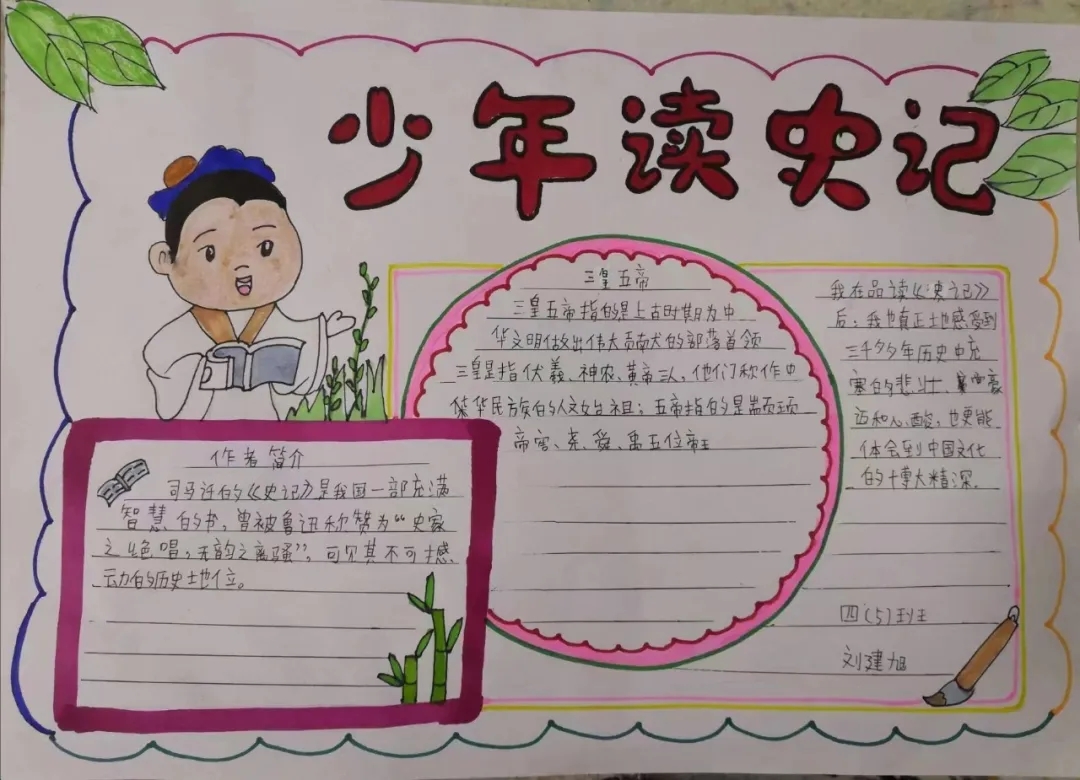 少年读史记
作者简介
司马迁的《史记》是我国一部充满
智慧的书，曾被鲁迅称赞为“史家
之绝唱，无韵之离骚”，可见其不可撼
动的历史地位。
三皇五帝
三皇五帝指的是上古时期为中
华文明做出伟大贡献的部落首领
三皇是指伏羲、神农、黄帝三人，他们称作中
华民族的人文始祖；五帝指的是颛顼
帝喾、尧、舜、禹五位帝王
我在品读《史记》
后；我也真正地感受到
三千多年历史中充
塞的悲壮、豪
迈和心酸，也更能
体会到中国文化
的博大精深.
四(5)班
刘建旭